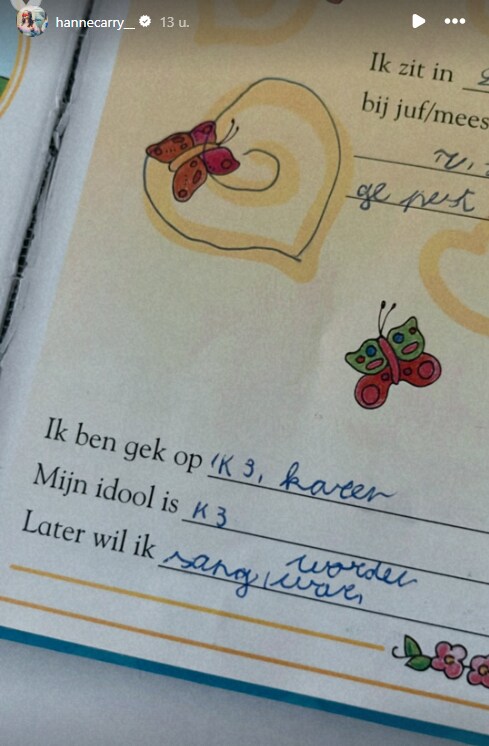 hannecarry__ 13 u.
Ik zit in
bij juf/mees
ge pest
Ik ben gek op K3, karen
Mijn idool is K3
Later wil ik zang, worden